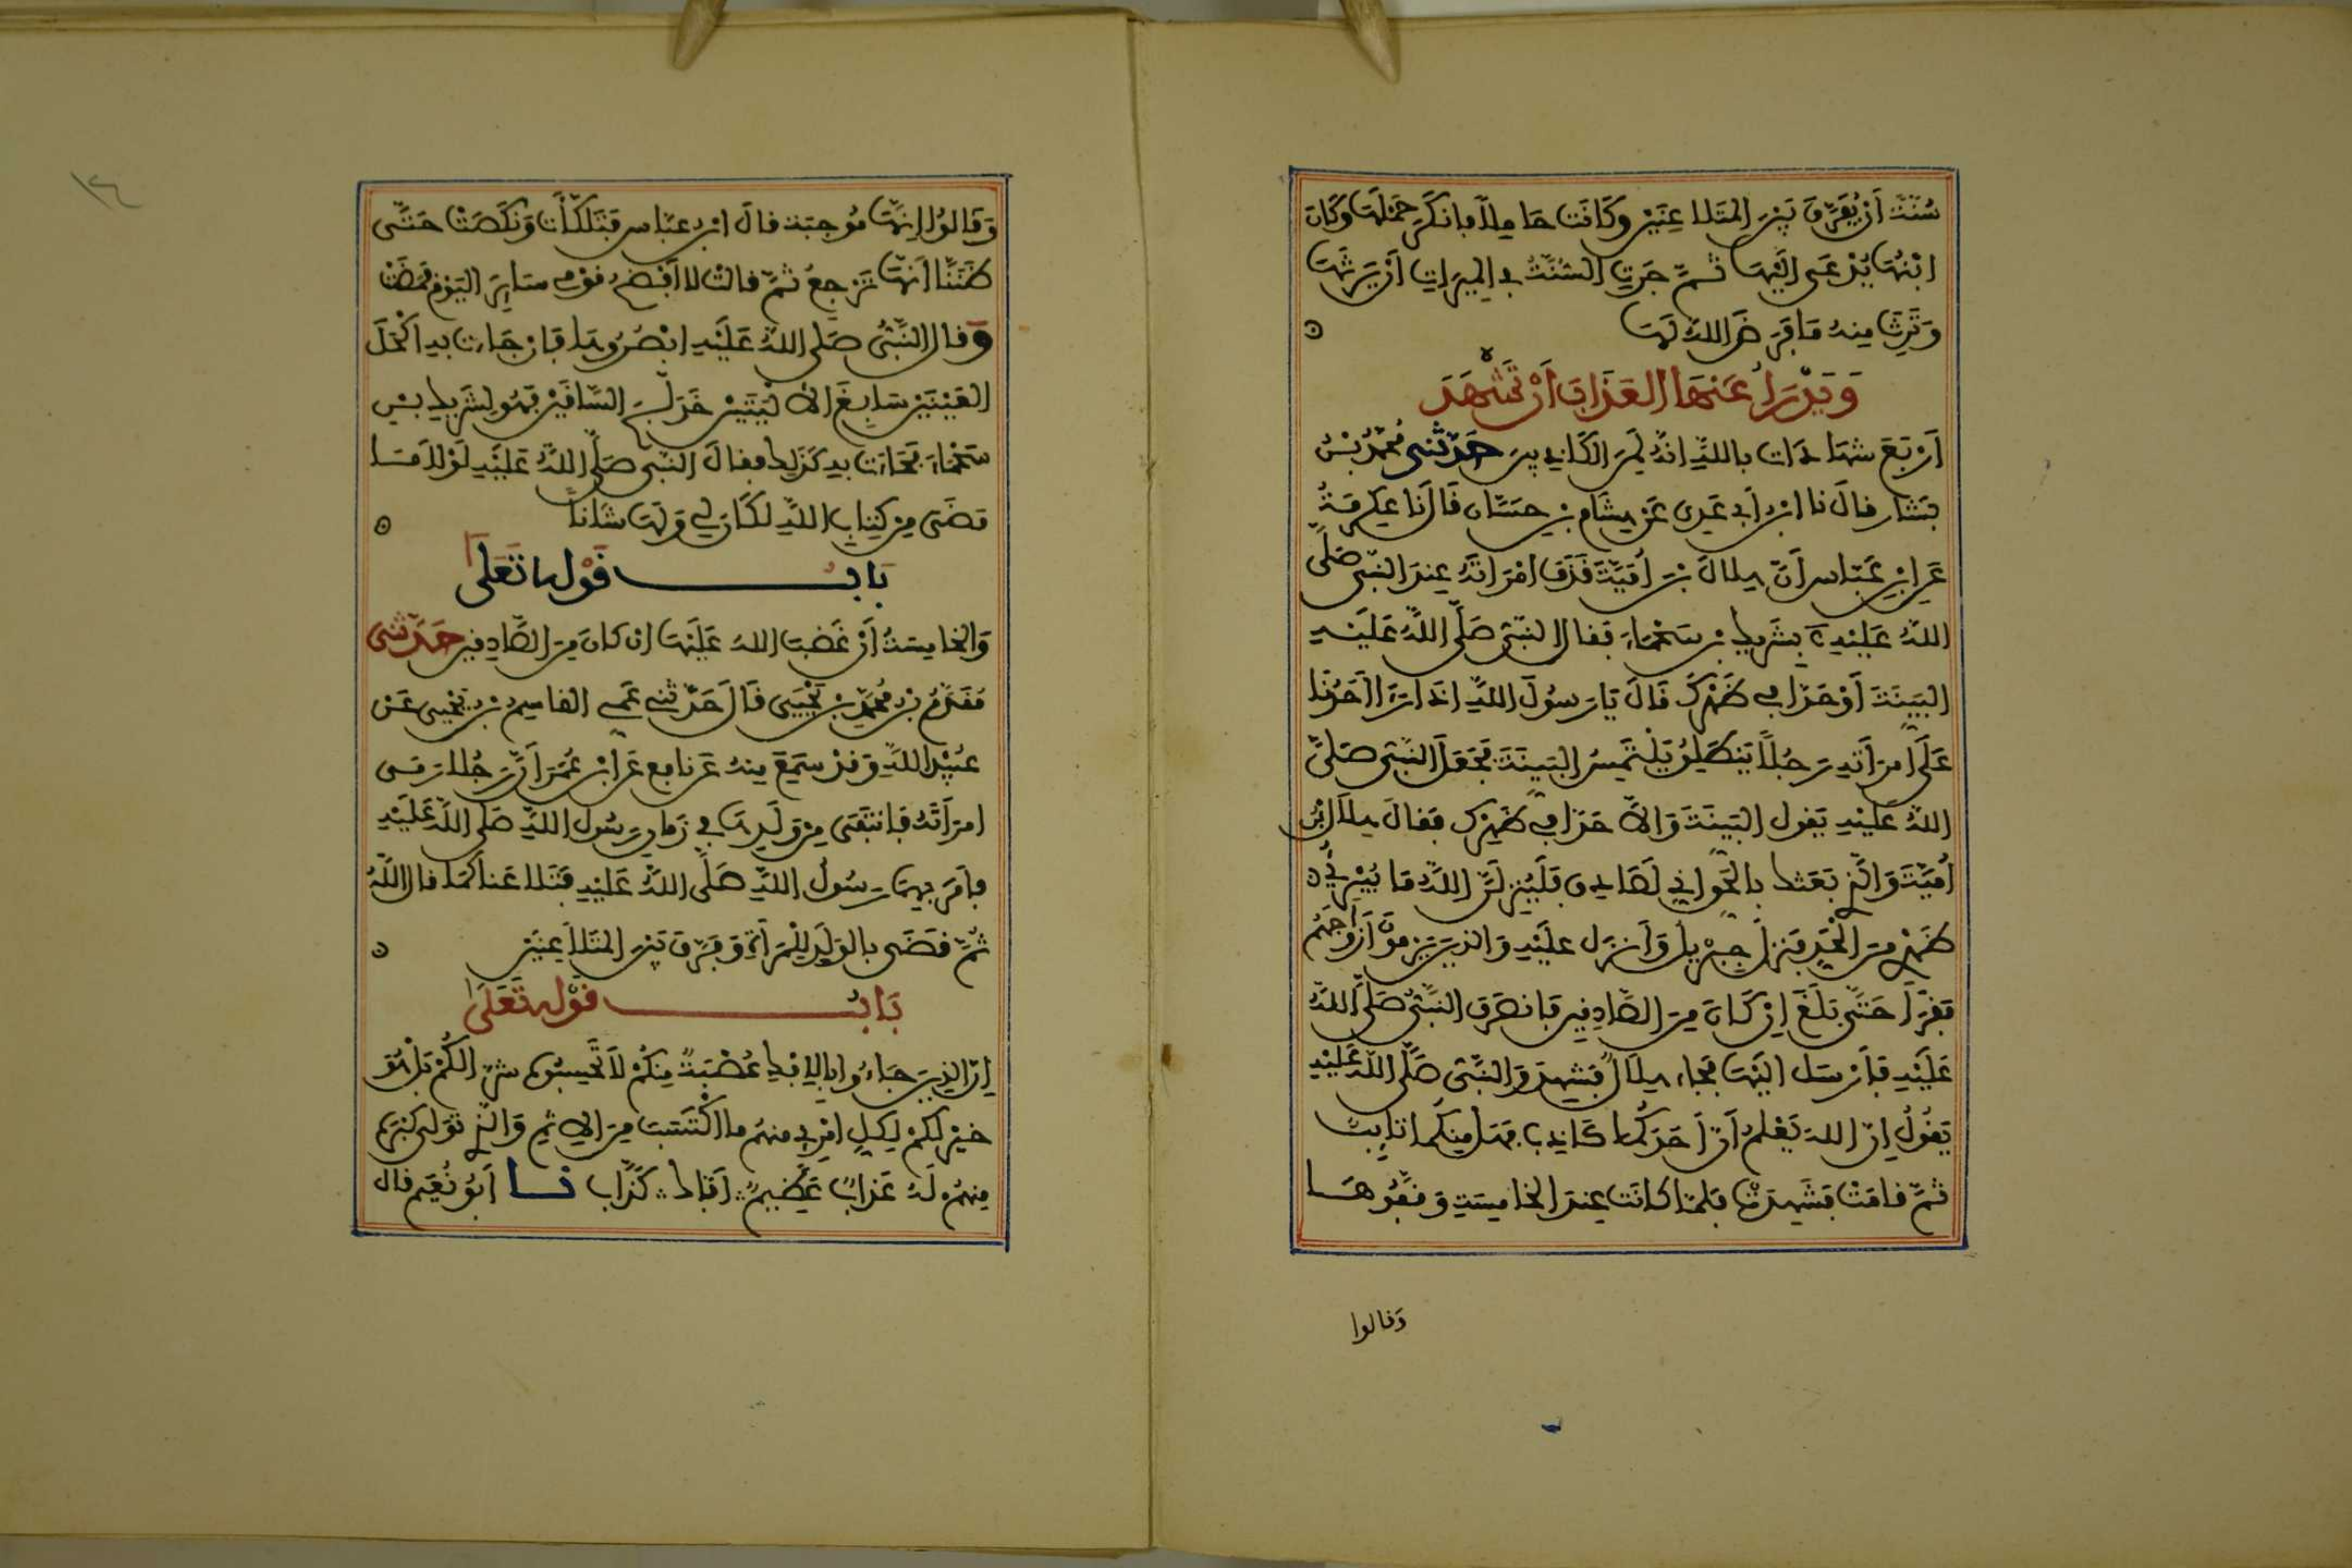 سُنَّةً أَنْ يُفَرَّقَ بَيْنَ المُتَلَاعِنَيْنِ وَكَانَتْ حَامِلًا فَأَنْكَرَ حَمْلَهَا وَكَانَ
ابْنُهَا يُدْعَى إِلَيْهَا ثُمَّ جَرَتِ السُّنَّةُ فِي المِيرَاثِ أَنْ يَرِثَهَا
وَتَرِثَ مِنْهُ مَا فَرَضَ اللهُ لَهَا
وَيَدْرَأُ عَنْهَا العَذَابَ أَنْ تَشْهَدَ
أَرْبَعَ شَهَادَاتٍ بِاللهِ إِنَّهُ لَمِنَ الكَاذِبِينَ حَدَّثَنِي مُحَمَّدُ بْنُ
بَشَّارٍ قَالَ نا ابْنُ أَبِي عَدِيٍّ عَنْ هِشَامِ بْنِ حَسَّانَ قَالَ نَا عِكْرِمَةُ
عَنِ ابْنِ عَبَّاسٍ أَنَّ هِلَالَ بْنَ أُمَيَّةَ قَذَفَ امْرَأَتَهُ عِنْدَ النَّبِيِّ صَلَّى
اللهُ عَلَيْهِ بِشَرِيكِ بْنِ سَحْمَاءَ فَقَالَ النَّبِيُّ صَلَّى اللهُ عَلَيْهِ
البَيِّنَةَ أَوْ حَدًّا فِي ظَهْرِكَ قَالَ يَا رَسُولَ اللهِ إِذَا رَأَى أَحَدُنَا
عَلَى امْرَأَتِهِ رَجُلًا يَنْطَلِقُ يَلْتَمِسُ البَيِّنَةَ فَجَعَلَ النَّبِيُّ صَلَّى
اللهُ عَلَيْهِ يَقُولُ البَيِّنَةَ وَإِلَّا حَدًّا فِي ظَهْرِكَ فَقَالَ هِلَالُ بْنُ
أُمَيَّةَ وَالَّذِي بَعَثَكَ بِالحَقِّ إِنِّي لَصَادِقٌ فَلَيُنْزِلَنَّ اللهُ مَا يُبَرِّئُ
ظَهْرِي مِنَ الحَدِّ فَنَزَلَ جِبْرِيلُ وَأَنْزَلَ عَلَيْهِ وَالَّذِينَ يَرْمُونَ أَزْوَاجَهُمْ
فَقَرَأَ حَتَّى بَلَغَ إِنْ كَانَ مِنَ الصَّادِقِينَ فَانْصَرَفَ النَّبِيُّ صَلَّى اللهُ
عَلَيْهِ فَأَرْسَلَ إِلَيْهَا فَجَاءَ هِلَالٌ فَشَهِدَ وَالنَّبِيُّ صَلَّى اللهُ عَلَيْهِ
يَقُولُ إِنَّ اللهَ يَعْلَمُ أَنَّ أَحَدَكُمَا كَاذِبٌ فَهَلْ مِنْكُمَا تَائِبٌ
ثُمَّ قَامَتْ فَشَهِدَتْ فَلَمَّا كَانَتْ عِنْدَ الخَامِسَةِ وَقَّفُوهَا
وَقالوا
وَقَالُوا إِنَّهَا مُوجِبَة قَالَ ابْنُ عَبَّاسٍ فَتَلَكَّأَتْ وَنَكَصَتْ حَتَّى
ظَنَنَّا أَنَّهَا تَرْجِعُ ثُمَّ قَالَتْ لا أَفْضَحُ قَوْمِي سَائِرَ اليَوْمِ فَمَضَتْ
وَقَالَ النَّبِيُّ صَلَّى اللهُ عَلَيْهِ ابْصُرُوهَا فَإِنْ جَاءَتْ بِهِ أَكْحَلَ
العَيْنَيْنِ سَابِغَ الأَلْيَتَيْنِ خَدَلَّجَ السَّاقَيْنِ فَهُوَ لِشَرِيكِ بْنِ
سَحْمَاءَ فَجَاءَتْ بِهِ كَذَلِكَ فَقَالَ النَّبِيُّ صَلَّى اللهُ عَلَيْهِ لَوْلَا مَا
مَضَى مِنْ كِتَابِ اللهِ لَكَانَ لِي وَلَهَا شَأْنًا
بَابُ قَوْلِهِ تَعَلَى
وَالخَامِسَةُ أَنْ غَضِبَ اللهُ عَلَيْهَا إِن كَانَ مِنَ الصَّادِقِينَ حَدَّثَنِي
مُقَدَّمُ بْنُ مُحَمَّدِ بْنِ يَحْيَى قَالَ حَدَّثَنِي عَمِّي القَاسِمُ بْنُ يَحْيَى عَنْ
عُبَيْدِ اللهِ وَقَدْ سَمِعَ مِنْهُ عَنْ نَافِعٍ عَنِ ابْنِ عُمَرَ أَنَّ رَجُلًا رَمَى
امْرَأَتَهُ فَانْتَفَى مِنْ وَلَدِهَا فِي زَمَانِ رَسُولِ اللهِ صَلَّى اللهُ عَلَيْهِ
فَأَمَرَ بِهِمَا رَسُولُ اللهِ صَلَّى اللهُ عَلَيْهِ فَتَلَاعَنَا كَمَا قَالَ اللهُ
ثُمَّ قَضَى بِالوَلَدِ لِلْمَرْأَةِ وَفَرَّقَ بَيْنَ المُتَلَاعِنَيْنِ
بَابُ قَوْلِهِ تَعَلَى
إِنَّ الَّذِينَ جَاءُوا بِالإِفْكِ عُصْبَةٌ مِنْكُمْ لَا تَحْسِبُوهُ شَرًّا لَكُمْ بَلْ هُوَ
خَيْرٌ لَكُمْ لِكُلِّ امْرِئٍ مِنْهُمْ مَا اكْتَسَبَ مِنَ الإِثْمِ وَالَّذِي تَوَلَّى كِبْرَهُ
مِنْهُمْ لَهُ عَذَابٌ عَظِيمٌ أَفَّاكٌ كَذَّابٌ نا أَبُو نُعَيْمٍ قَالَ